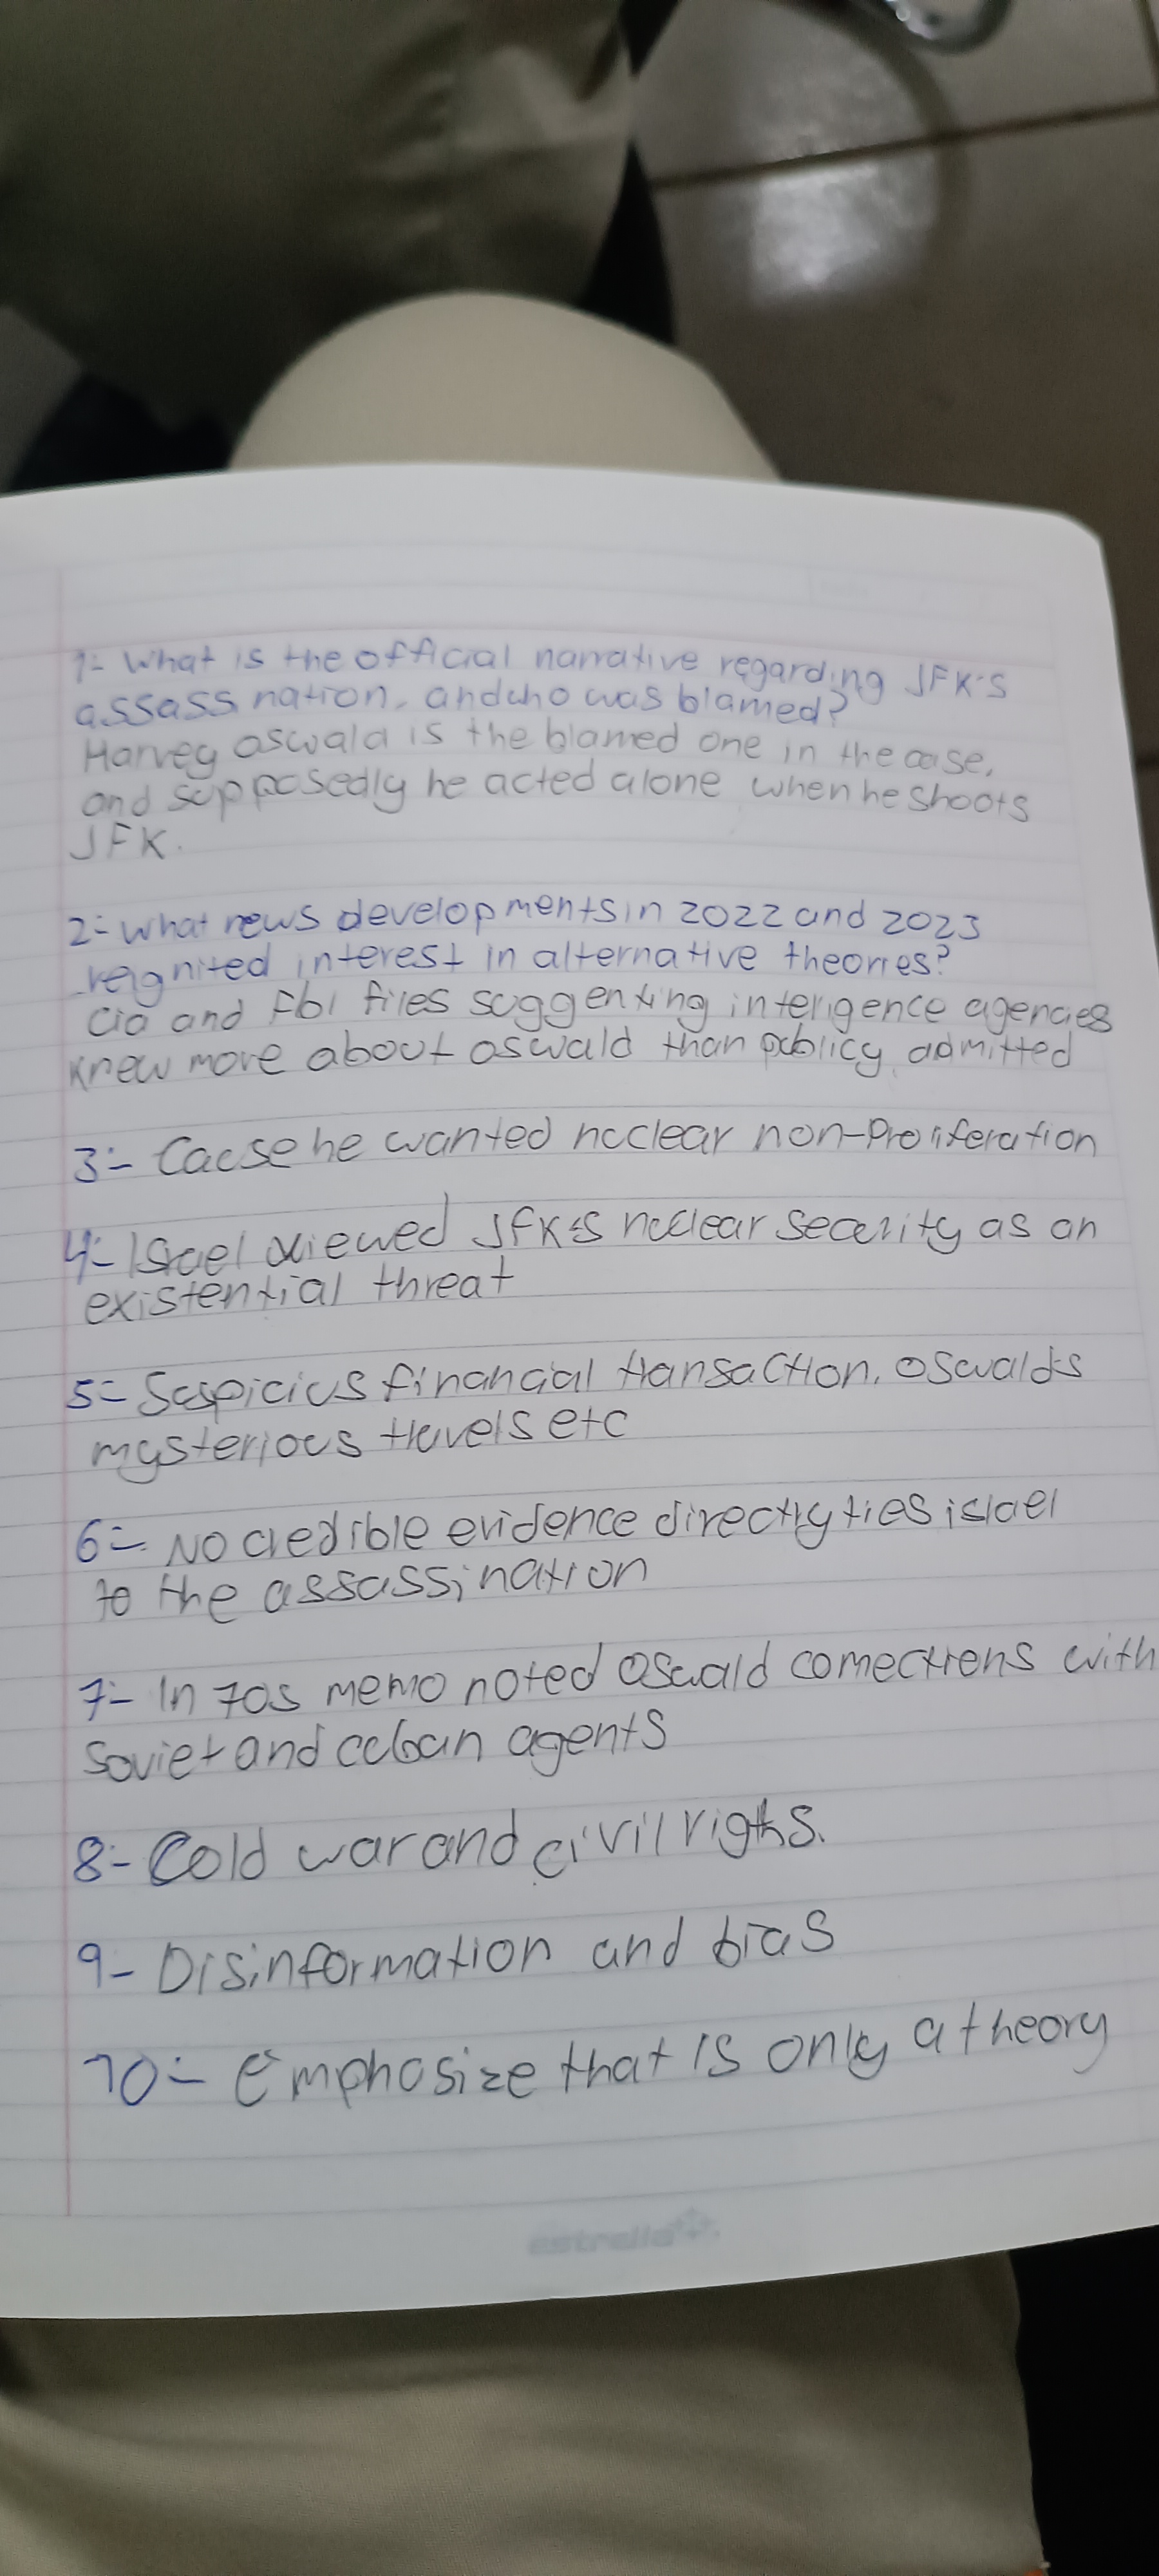 1- What is the official narrative regarding JFK'S
assassination, and who was blamed?
Harvey oswald is the blamed one in the case,
and supposedly he acted alone when he shoots
JFK.
2- What news developments in 2022 and 2023
reignited interest in alternative theories?
Cia and Fbi files suggenting interigence agencies
Knew more about oswald than publicy admitted
3- Cause he wanted nuclear non-Proliferation
4- Israel viewed JFK's nuclear security as an
existential threat
5- Suspicius financial transaction, oswalds
mysterious travels etc
6- No credible evidence directly ties israel
to the assassination
7- In 70s memo noted Oswald connections with
Soviet and cuban agents
8- Cold war and civil rigths.
9- Disinformation and bias
10- Emphasize that is only a theory